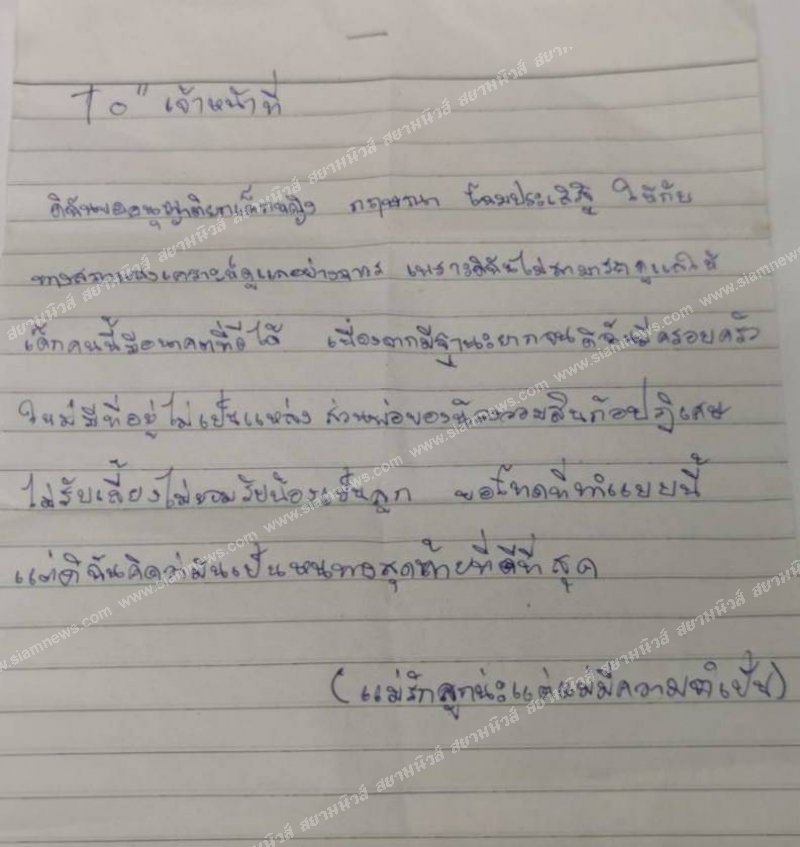 To" เจ้าหน้าที่
ดิฉันขออนุญาติยกเด็กหญิง กฤษณา โฉมประเสริฐ ให้กับ
ทางสถานสงเคราะห์ดูแลอย่างถาวร เพราะดิฉันไม่สามารถดูแลให้
เด็กคนนี้มีอนาคตที่ดีได้ เนื่องจากมีฐานะยากจนดิฉันมีครอบครัว
ใหม่มีที่อยู่ไม่เป็นแหล่ง ส่วนพ่อของน้อง ก้อปฎิเศษ
ไม่รับเลี้ยงไม่ยอมรับน้องเป็นลูก ขอโทดที่ทำแบบนี้
แต่ดิฉันคิดว่ามันเป็นหนทางสุดท้ายที่ดีที่สุด
(แม่รักลูกน่ะแต่แม่มีความจำเป็น)
สยามนิวส์ www.siamnews.com